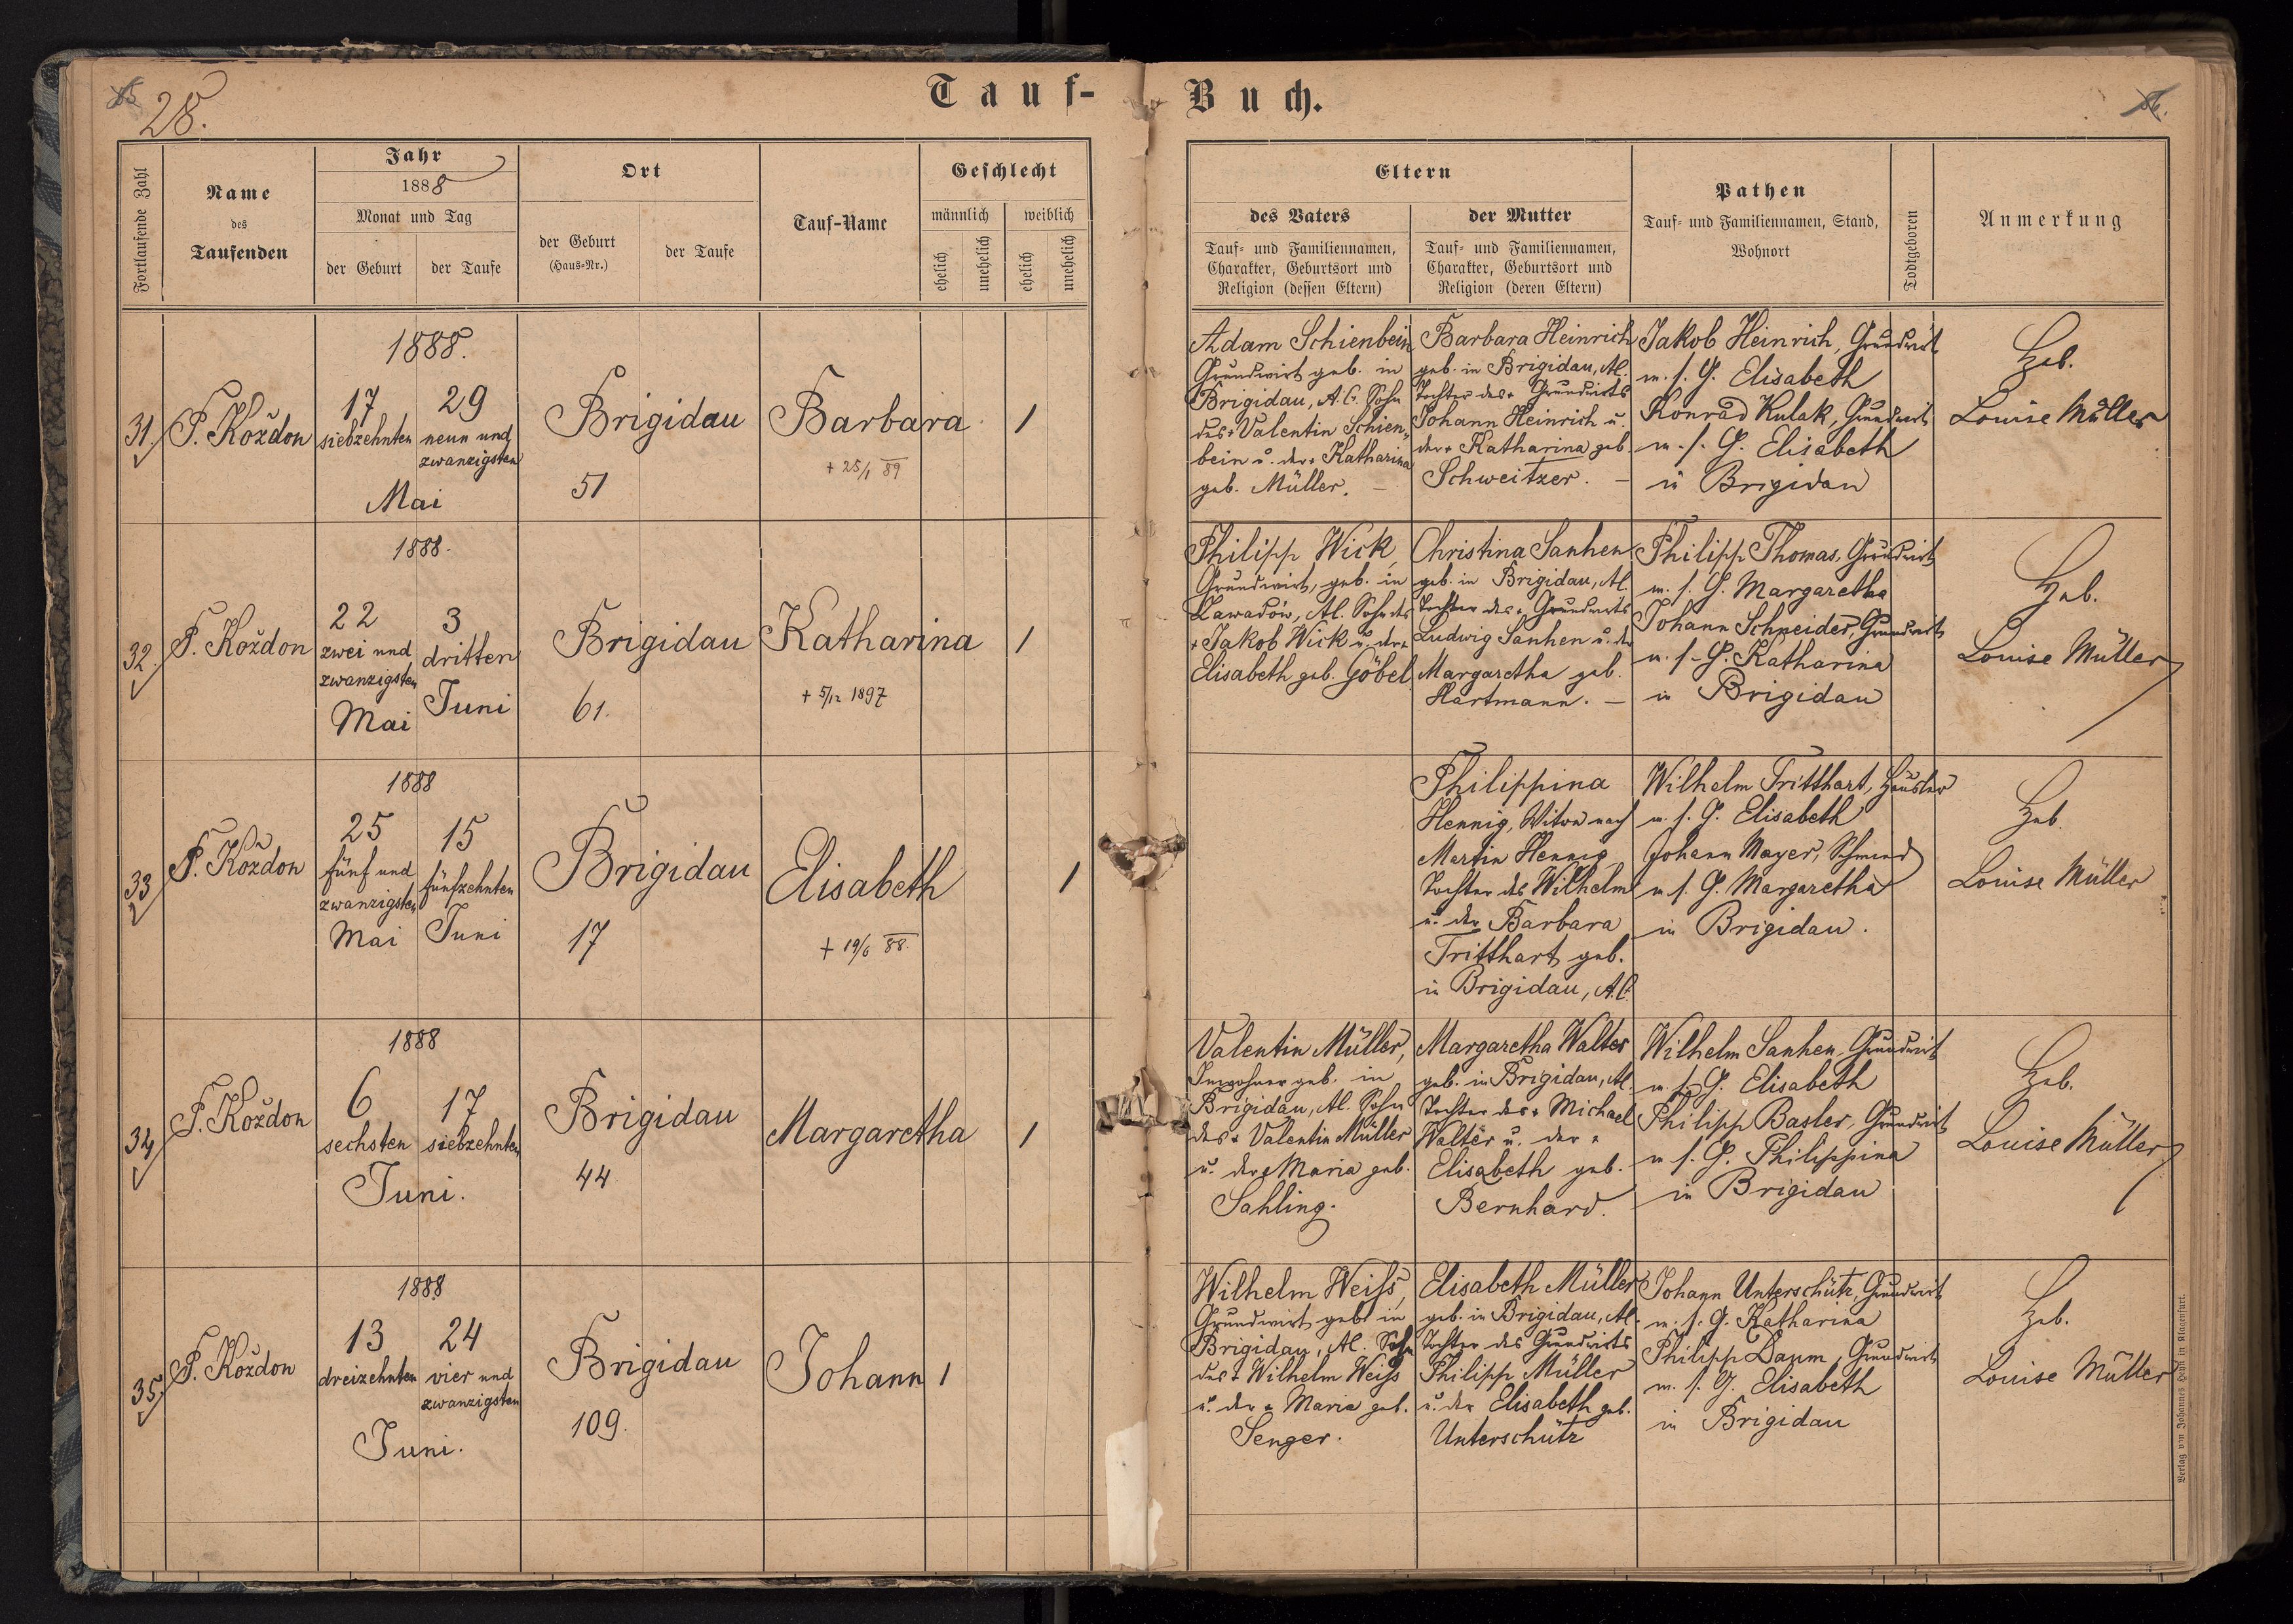 85
28.
Tauf-
Buch.
86.
Fortlaufende Zahl
Name
des
Taufenden
Jahr
1888
Monat und Tag
der Geburt
der Taufe
Ort
der Geburt
(Haus-Nr.)
der Taufe
Tauf-Name
Geschlecht
männlich
weiblich
ehelich
unehelich
ehelich
unehelich
Eltern
des Vaters
Tauf- und Familiennamen,
Charakter, Geburtsort und
Religion (dessen Eltern)
der Mutter
Tauf- und Familiennamen,
Charakter, Geburtsort und
Religion (deren Eltern)
Pathen
Tauf- und Familiennamen, Stand,
Wohnort
Todtgeboren
Anmerkung
31.
P. Koždon
1888.
17
siebzehnten
29
neun und
zwanzigsten
Mai
Brigidau
51
Barbara
+ 25/1 89
1
Adam Schienbein
Grundwirt geb. in
Brigidau, A.C. Sohn
des + Valentin Schien-
bein u. der + Katharina
geb. Müller.
Barbara Heinrich
geb. in Brigidau, A.C.
Tochter des + Grundwirts
Johann Heinrich u.
der + Katharina geb.
Schweitzer.
Jakob Heinrich, Grundwirt
m. s. G. Elisabeth
Konrad Kulak, Grundwirt
m. s. G. Elisabeth
in Brigidau
Heb.
Louise Müller
32.
P. Koždon
1888.
22
zwei und
zwanzigsten
Mai
3
dritten
Juni
Brigidau
61.
Katharina
+ 5/12 1897
1
Philipp Wick,
Grundwirt, geb. in
Zawadów, A.C. Sohn des
+ Jakob Wick u. der +
Elisabeth geb. Göbel.
Christina Sanhen
geb. in Brigidau, A.C.
Tochter des + Grundwirts
Ludwig Sanhen u. der
Margaretha geb.
Hartmann.
Philipp Thomas, Grundwirt
m. s. G. Margaretha
Johann Schneider, Grundwirt
m. s. G. Katharina
in Brigidau
Heb.
Louise Müller
33
P. Koždon
1888
25
fünf und
zwanzigsten
Mai
15
fünfzehnten
Juni
Brigidau
17
Elisabeth
+ 19/6 88.
1
Philippina
Hennig, Witwe nach
Martin Hennig
Tochter des Wilhelm
u. der Barbara
Tritthart geb.
in Brigidau, A.C.
Wilhelm Tritthart, Häusler
m. s. G. Elisabeth
Johann Mayer, Schmied
m. s. G. Margaretha
in Brigidau.
Heb.
Louise Müller
34
P. Koždon
1888
6
sechsten
17
siebzehnten
Juni.
Brigidau
44
Margaretha
1
Valentin Müller,
Inwohner geb. in
Brigidau, A.C. Sohn
des + Valentin Müller
u. der + Maria geb.
Sahling.
Margaretha Walter
geb. in Brigidau, A.C.
Tochter des + Michael
Walter u. der +
Elisabeth geb.
Bernhard.
Wilhelm Sanhen, Grundwirt
m. s. G. Elisabeth
Philipp Basler, Grundwirt
m. s. G. Philippina
in Brigidau
Heb.
Louise Müller
35.
P. Koždon
1888
13
dreizehnten
24
vier und
zwanzigsten
Juni.
Brigidau
109.
Johann
1
Wilhelm Weiss,
Grundwirt geb. in
Brigidau, A.C. Sohn
des + Wilhelm Weiss
u. der + Maria geb.
Senger.
Elisabeth Müller
geb. in Brigidau, A.C.
Tochter des Grundwirts
Philipp Müller
u. der Elisabeth geb.
Unterschütz
Johann Unterschütz, Grundwirt
m. s. G. Katharina
Philipp Daum, Grundwirt
m. s. G. Elisabeth
in Brigidau
Heb.
Louise Müller
Verlag von Johannes Heyn in Klagenfurt.